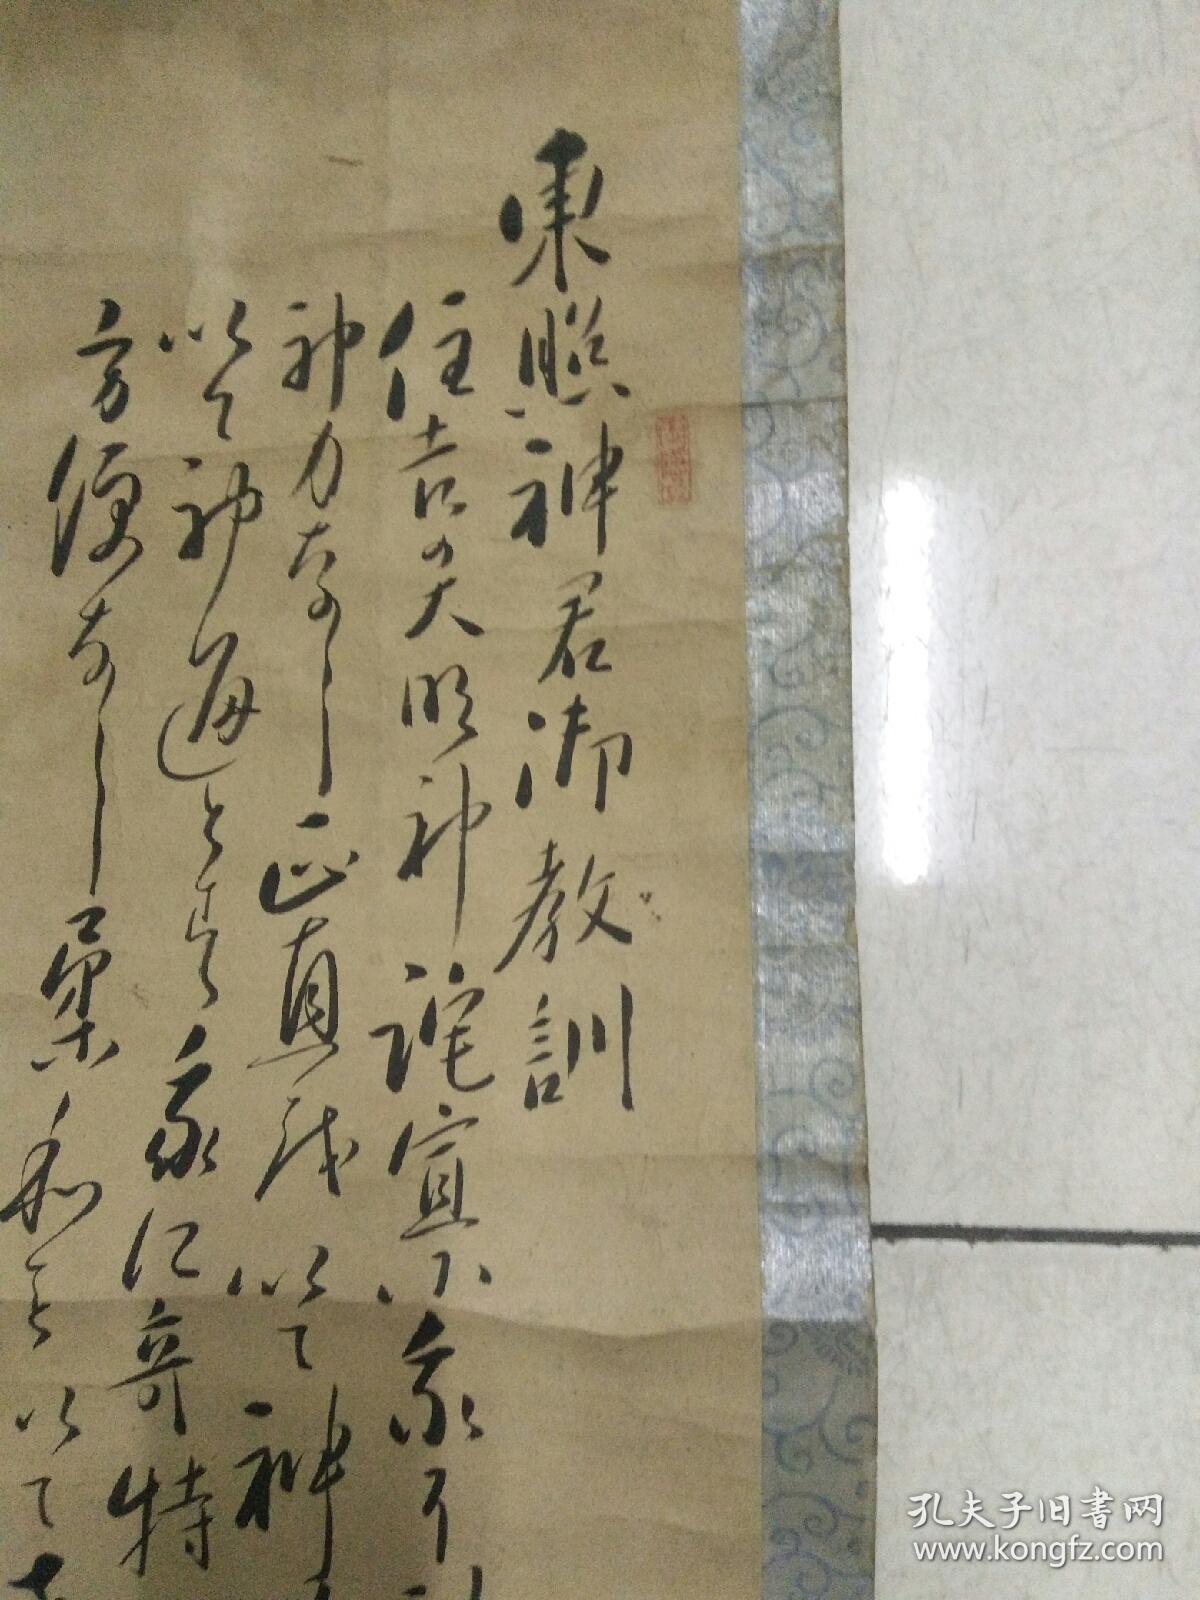 東照神君御教訓
住吉の大明神託宣ニ我ニ
神力なし正直を以て神
以て神通とす我に奇特
方便なし柔和を以て
孔夫子旧书网
www.kongfz.com